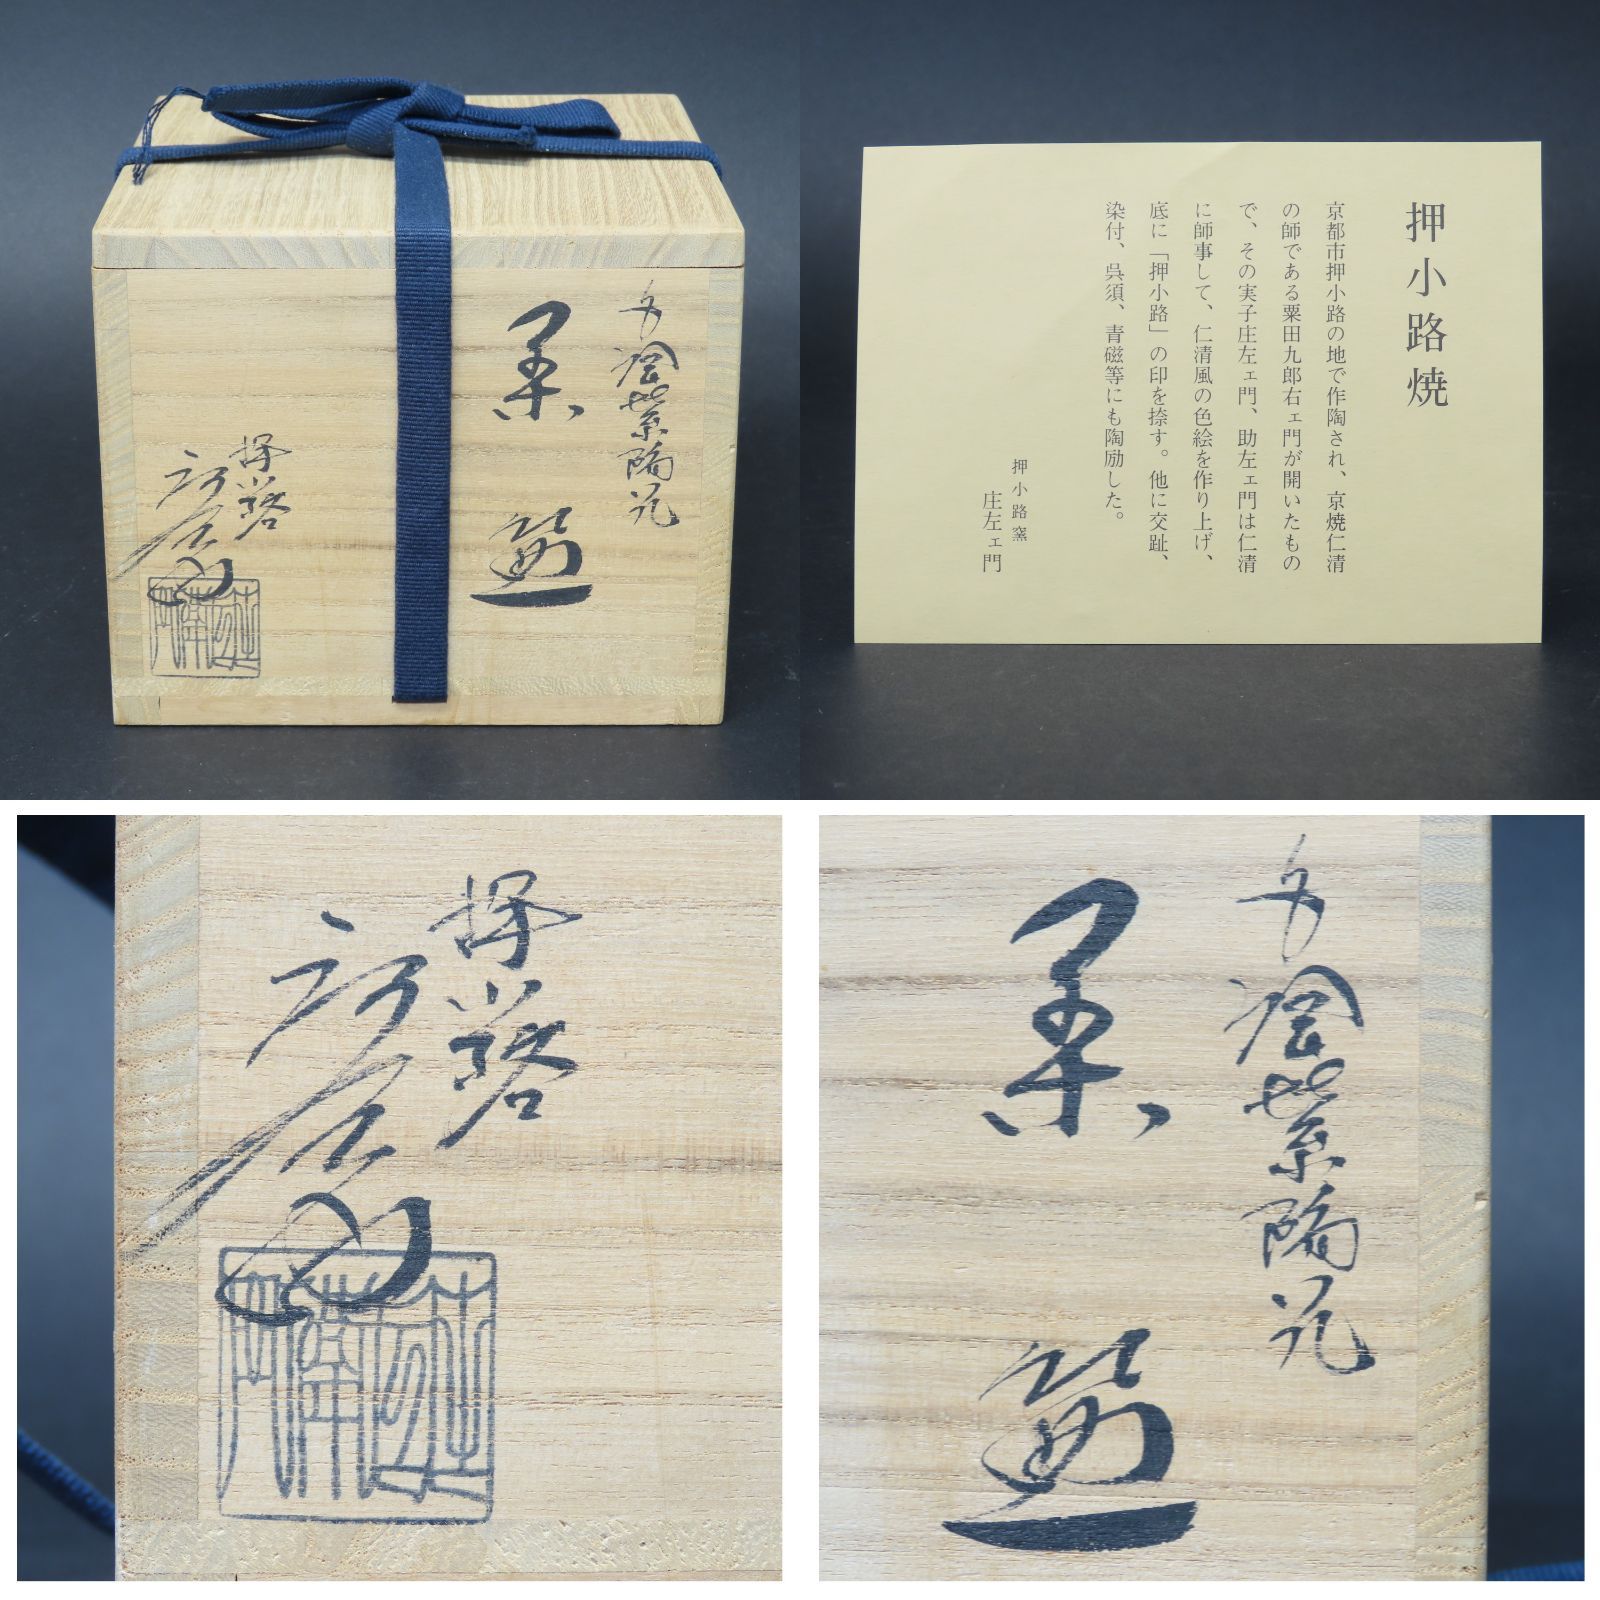 押小路焼
京都市押小路の地で作陶され、京焼仁清
の師である粟田九郎右ェ門が開いたもの
で、その実子庄左ェ門、助左ェ門は仁清
に師事して、仁清風の色絵を作り上げ、
底に「押小路」の印を捺す。他に交趾、
染付、呉須、青磁等にも陶励した。
押小路窯
庄左ェ門
茶盌
押小路
茶盌
押小路